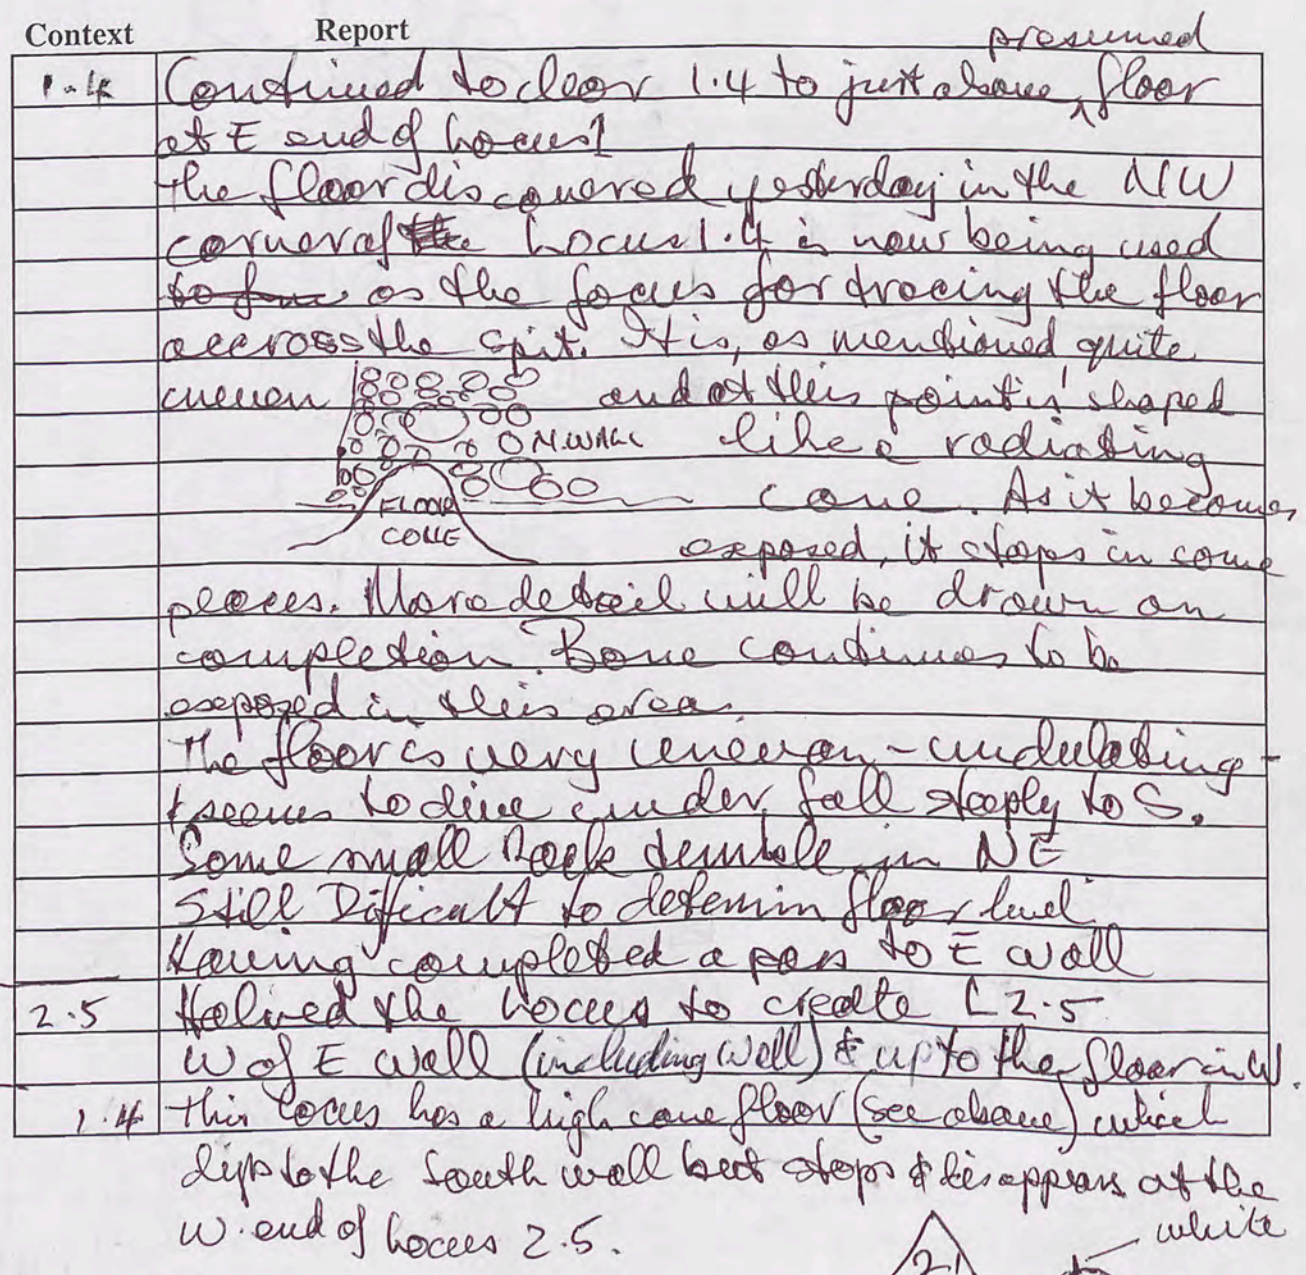 Context Report
presumed
1.4 Continued to clear 1.4 to just above ^ floor
at E end of Locus 1
The floor discovered yesterday in the NW
corner of the Locus 1.4 is now being used
as the focus for tracing the floor
accross the spit. It is, as mentioned quite
uneven and at this point is shaped
N.WALL like a radiating
FLOOR cone. As it becomes
CONE exposed, it stops in some
places. More detail will be drawn on
completion. Bone continues to be
exposed in this area.
The floor is very uneven - undulating -
+ seems to dive under, fall steeply to S.
Some small Rock tumble in NE
Still Dificult to determin floor level
Having completed a pass to E wall
2.5 Halved the Locus to create L 2.5
W of E wall (including wall) & up to the floor in W.
1.4 This Locus has a high cone floor (see above) which
dips to the South wall but stops & disappears at the
W. end of Locus 2.5.
white
21